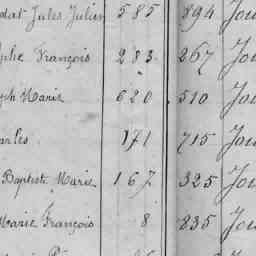 Jules Julien 585 894 Jou
François 283 267 Jou
Marie 620 510 Jou
171 715 Jou
Baptiste Marie 167 325 Jou
Marie François 8 835 Jou